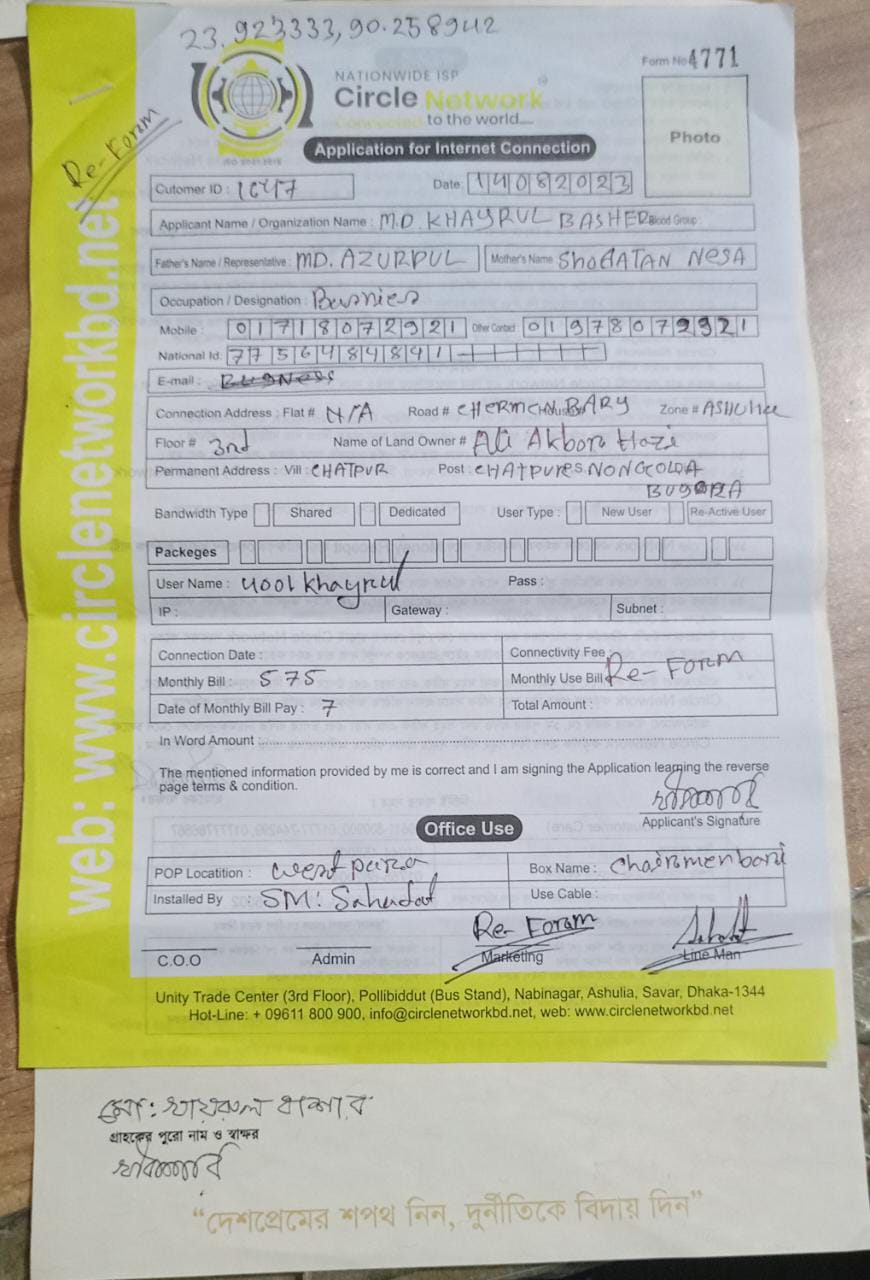 23.923333, 90.258942
NATIONWIDE ISP
Circle Network
Connected to the world....
ISO 9001:2015
Form No 4771
Photo
Re-Foram
web: www.circlenetworkbd.net
Application for Internet Connection
Cutomer ID : 1647 Date: 14082023
Applicant Name / Organization Name : M.D. KHAYRUL BASHER Blood Group :
Father's Name / Representative : MD. AZURPUL Mother's Name SHODATAN NESA
Occupation / Designation : Busnies
Mobile : 01718072921 Other Contact : 01978072921
National Id: 7756484841
E-mail :
Connection Address : Flat # N/A Road # CHERMEN BARY Zone # ASHULIA
Floor # 3rd Name of Land Owner # Ali Akbor Hazi
Permanent Address : Vill : CHATPUR Post : CHATPUR PS. NONGOLDA
BUGORA
Bandwidth Type Shared Dedicated User Type : New User Re-Active User
Packeges
User Name : 4001khayrul Pass :
IP : Gateway : Subnet :
Connection Date : Connectivity Fee :
Monthly Bill : 575 Monthly Use Bill Re-Foram
Date of Monthly Bill Pay : 7 Total Amount :
In Word Amount :
The mentioned information provided by me is correct and I am signing the Application learning the reverse
page terms & condition.
Applicant's Signature
Office Use
POP Locatition : West para Box Name : Chairmenbari
Installed By : SM: Sahadat Use Cable :
Re-Foram Sahadat
C.O.O Admin Marketing Line Man
Unity Trade Center (3rd Floor), Pollibiddut (Bus Stand), Nabinagar, Ashulia, Savar, Dhaka-1344
Hot-Line: + 09611 800 900, info@circlenetworkbd.net, web: www.circlenetworkbd.net
মো: খায়রুল বাশার
গ্রাহকের পুরো নাম ও স্বাক্ষর
“দেশপ্রেমের শপথ নিন, দুর্নীতিকে বিদায় দিন”